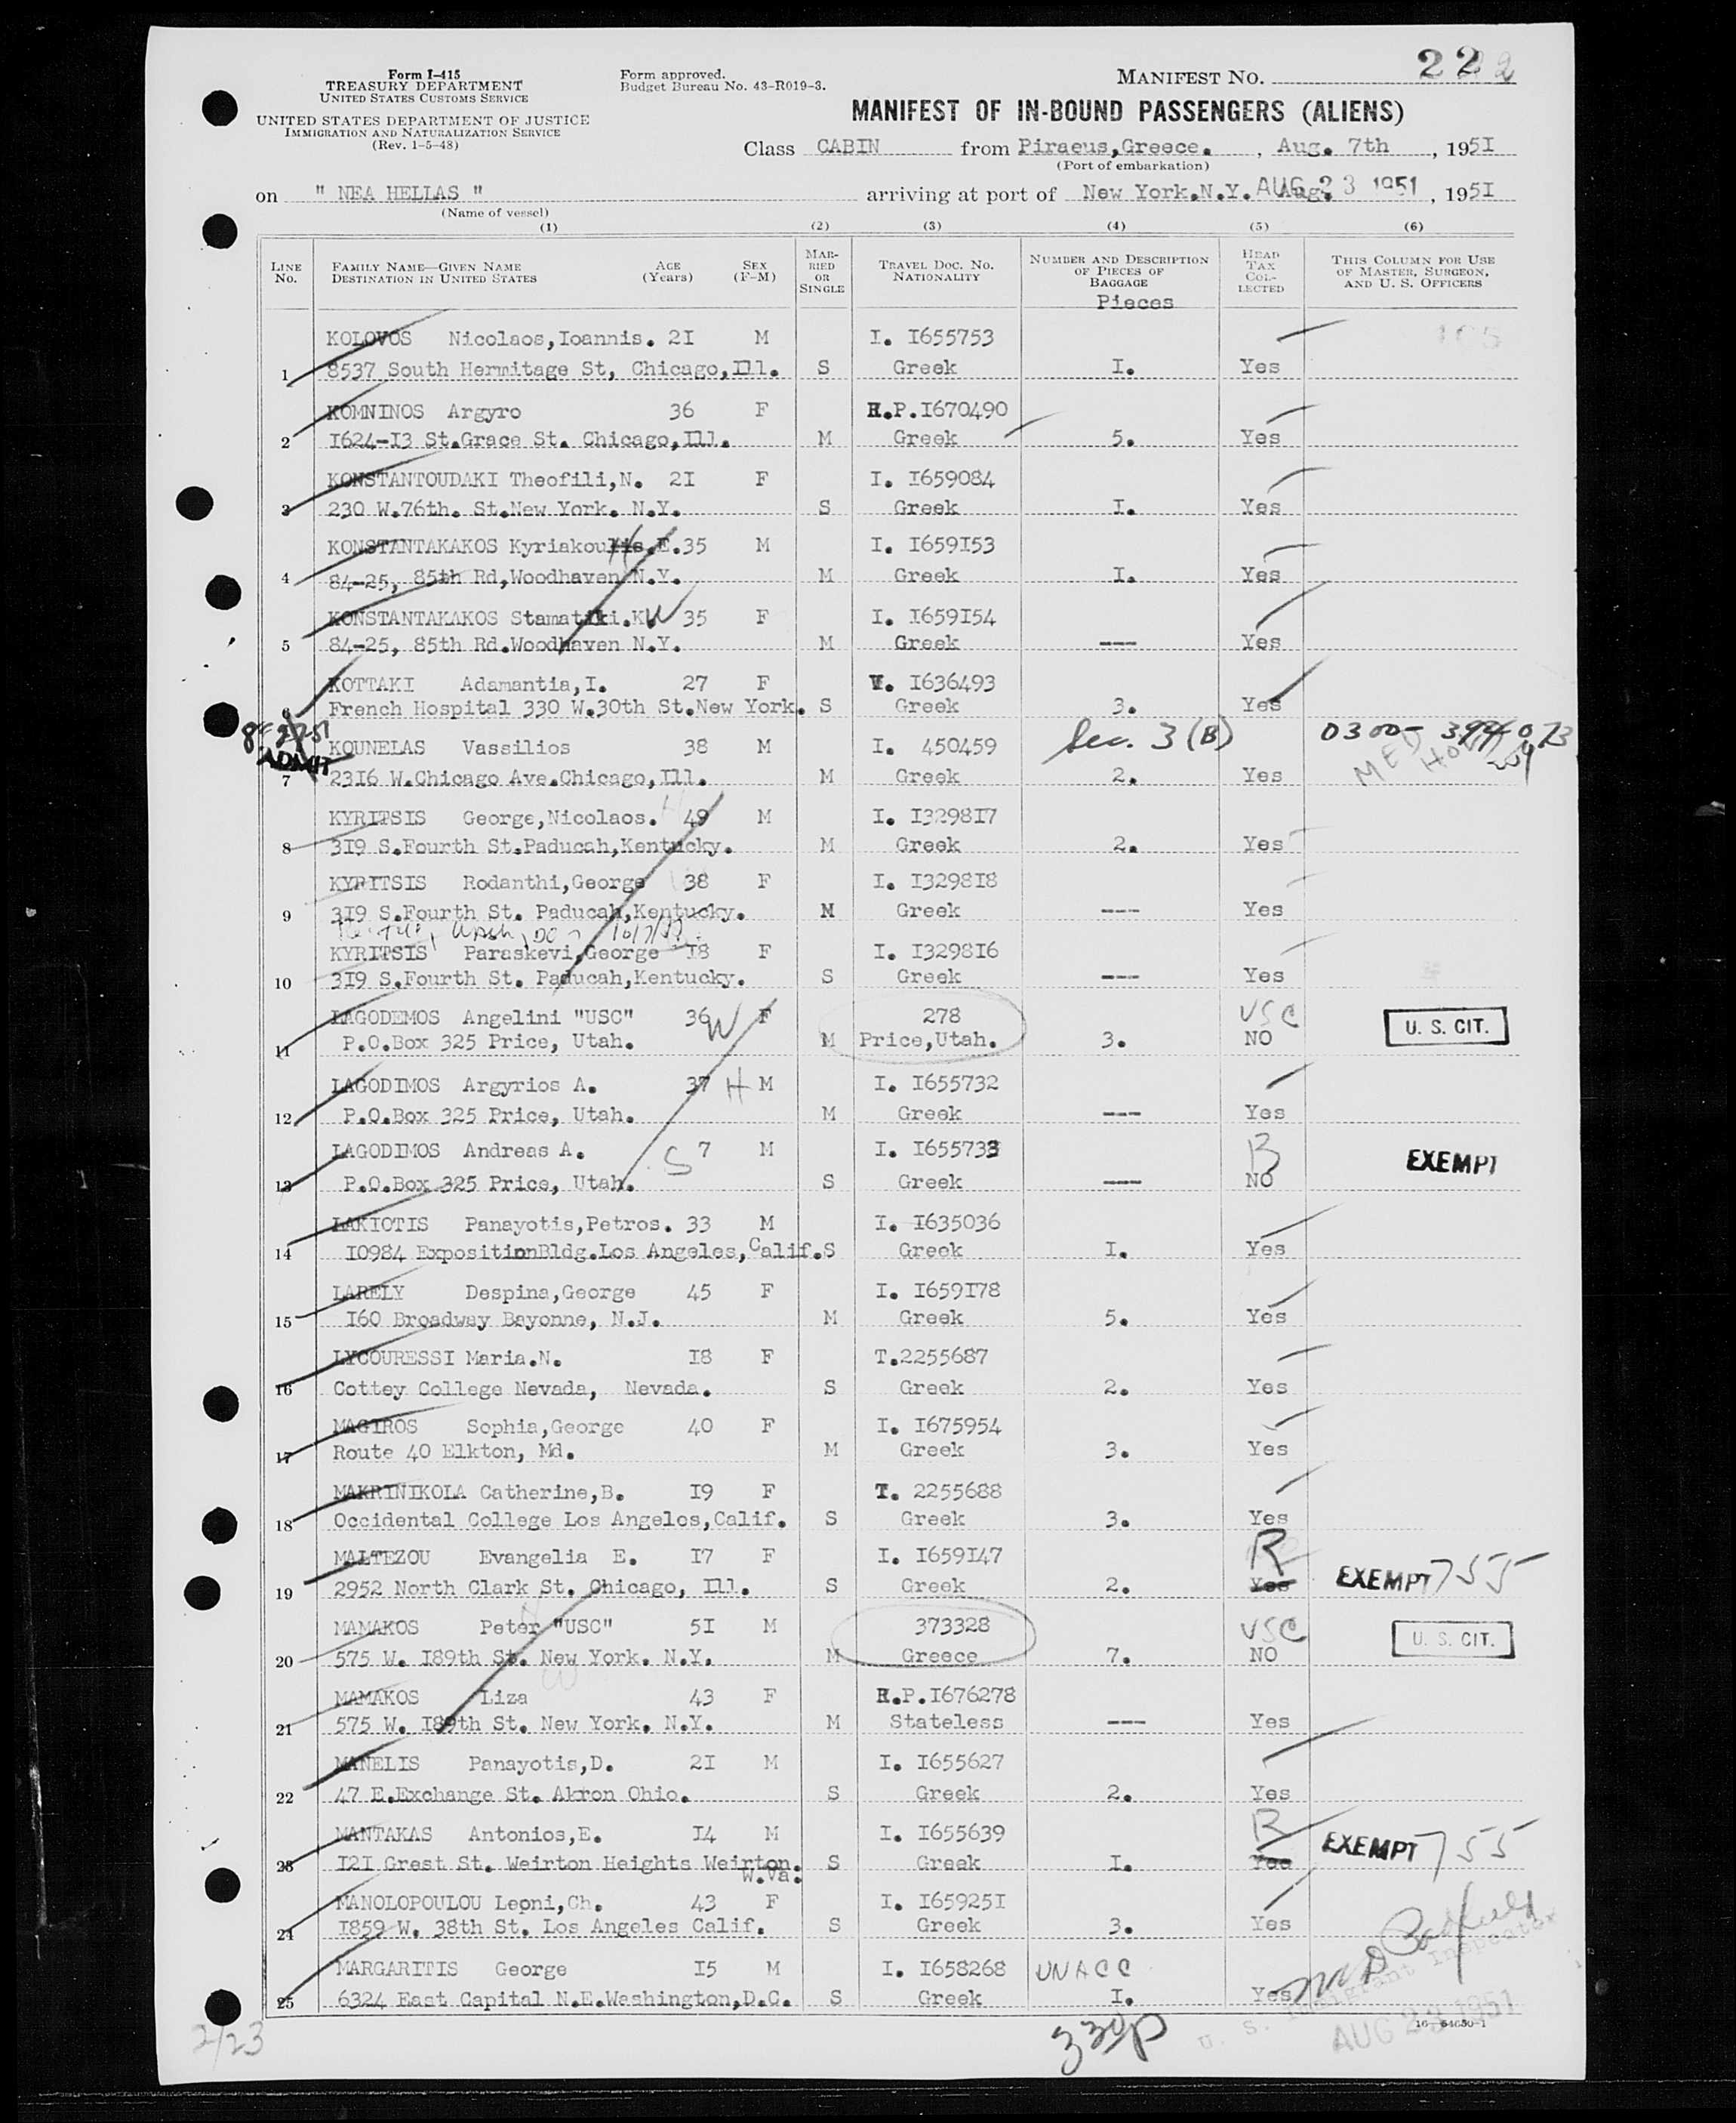 Form I-415
TREASURY DEPARTMENT
UNITED STATES CUSTOMS SERVICE
UNITED STATES DEPARTMENT OF JUSTICE
IMMIGRATION AND NATURALIZATION SERVICE
(Rev. 1-5-48)
Form approved.
Budget Bureau No. 43-R019-3.
MANIFEST NO. 22
MANIFEST OF IN-BOUND PASSENGERS (ALIENS)
Class CABIN from Piraeus,Greece. , Aug. 7th , 195I
(Port of embarkation)
on " NEA HELLAS " arriving at port of New York.N.Y. AUG 23 1951 , 195I
(Name of vessel)
(1) (2) (3) (4) (5) (6)
LINE NO. FAMILY NAME—GIVEN NAME DESTINATION IN UNITED STATES AGE (Years) SEX (F-M) MARRIED OR SINGLE TRAVEL DOC. NO. NATIONALITY NUMBER AND DESCRIPTION OF PIECES OF BAGGAGE HEAD TAX COLLECTED THIS COLUMN FOR USE OF MASTER, SURGEON, AND U. S. OFFICERS
Pieces
KOLOVOS Nicolaos,Ioannis. 2I M I. I655753
1 8537 South Hermitage St, Chicago,Ill. S Greek I. Yes
KOMNINOS Argyro 36 F R.P.I670490
2 I624-I3 St.Grace St. Chicago,Ill. M Greek 5. Yes
KONSTANTOUDAKI Theofili,N. 2I F I. I659084
3 230 W.76th. St.New York. N.Y. S Greek I. Yes
KONSTANTAKAKOS Kyriakoulis.E. 35 M I. I659I53
4 84-25, 85th Rd,Woodhaven N.Y. M Greek I. Yes
KONSTANTAKAKOS Stamatiki.K. W 35 F I. I659I54
5 84-25, 85th Rd.Woodhaven N.Y. M Greek --- Yes
KOTTAKI Adamantia,I. 27 F V. I636493
6 French Hospital 330 W.30th St.New York. S Greek 3. Yes
KOUNELAS Vassilios 38 M I. 450459 Sec. 3 (B) 0300-
ADMIT MED HOLD
7 23I6 W.Chicago Ave.Chicago,Ill. M Greek 2. Yes
KYRITSIS George,Nicolaos. H 49 M I. I3298I7
8 3I9 S.Fourth St.Paducah,Kentucky. M Greek 2. Yes
KYRITSIS Rodanthi,George W 38 F I. I3298I8
9 3I9 S.Fourth St. Paducah,Kentucky. M Greek --- Yes
KYRITSIS Paraskevi,George I8 F I. I3298I6
10 3I9 S.Fourth St. Paducah,Kentucky. S Greek --- Yes
LAGODEMOS Angelini "USC" 36 W F 278 USC U. S. CIT.
11 P.O.Box 325 Price, Utah. M Price,Utah. 3. NO
LAGODIMOS Argyrios A. 37 H M I. I655732
12 P.O.Box 325 Price, Utah. M Greek --- Yes
LAGODIMOS Andreas A. S 7 M I. I655733 B EXEMPT
13 P.O.Box 325 Price, Utah. S Greek --- NO
LAKIOTIS Panayotis,Petros. 33 M I. I635036
14 I0984 ExpositionBldg.Los Angeles,Calif. S Greek I. Yes
LARELY Despina,George 45 F I. I659I78
15 I60 Broadway Bayonne, N.J. M Greek 5. Yes
LYCOURESSI Maria.N. I8 F T.2255687
16 Cottey College Nevada, Nevada. S Greek 2. Yes
MAGIROS Sophia,George 40 F I. I675954
17 Route 40 Elkton, Md. M Greek 3. Yes
MAKRINIKOLA Catherine,B. I9 F T. 2255688
18 Occidental College Los Angelos,Calif. S Greek 3. Yes
MALTEZOU Evangelia E. I7 F I. I659I47 R EXEMPT 755
19 2952 North Clark St. Chicago, Ill. S Greek 2. Yes
MAMAKOS Peter "USC" 5I M 373328 USC U. S. CIT.
20 575 W. I89th St. New York. N.Y. M Greece 7. NO
MAMAKOS Liza 43 F R.P.I676278
21 575 W. I89th St. New York. N.Y. M Stateless --- Yes
MANELIS Panayotis,D. 2I M I. I655627
22 47 E.Exchange St. Akron Ohio. S Greek 2. Yes
MANTAKAS Antonios,E. I4 M I. I655639 R EXEMPT 755
23 I2I Grest St. Weirton Heights Weirton. W.Va. S Greek I. Yes
MANOLOPOULOU Leoni,Ch. 43 F I. I65925I
24 I859 W. 38th St. Los Angeles Calif. S Greek 3. Yes
MARGARITIS George I5 M I. I658268 UNACC
25 6324 East Capital N.E.Washington,D.C. S Greek I. Yes
U. S. Immigrant Inspector
AUG 23 1951
16—54650-1
2/23
330p